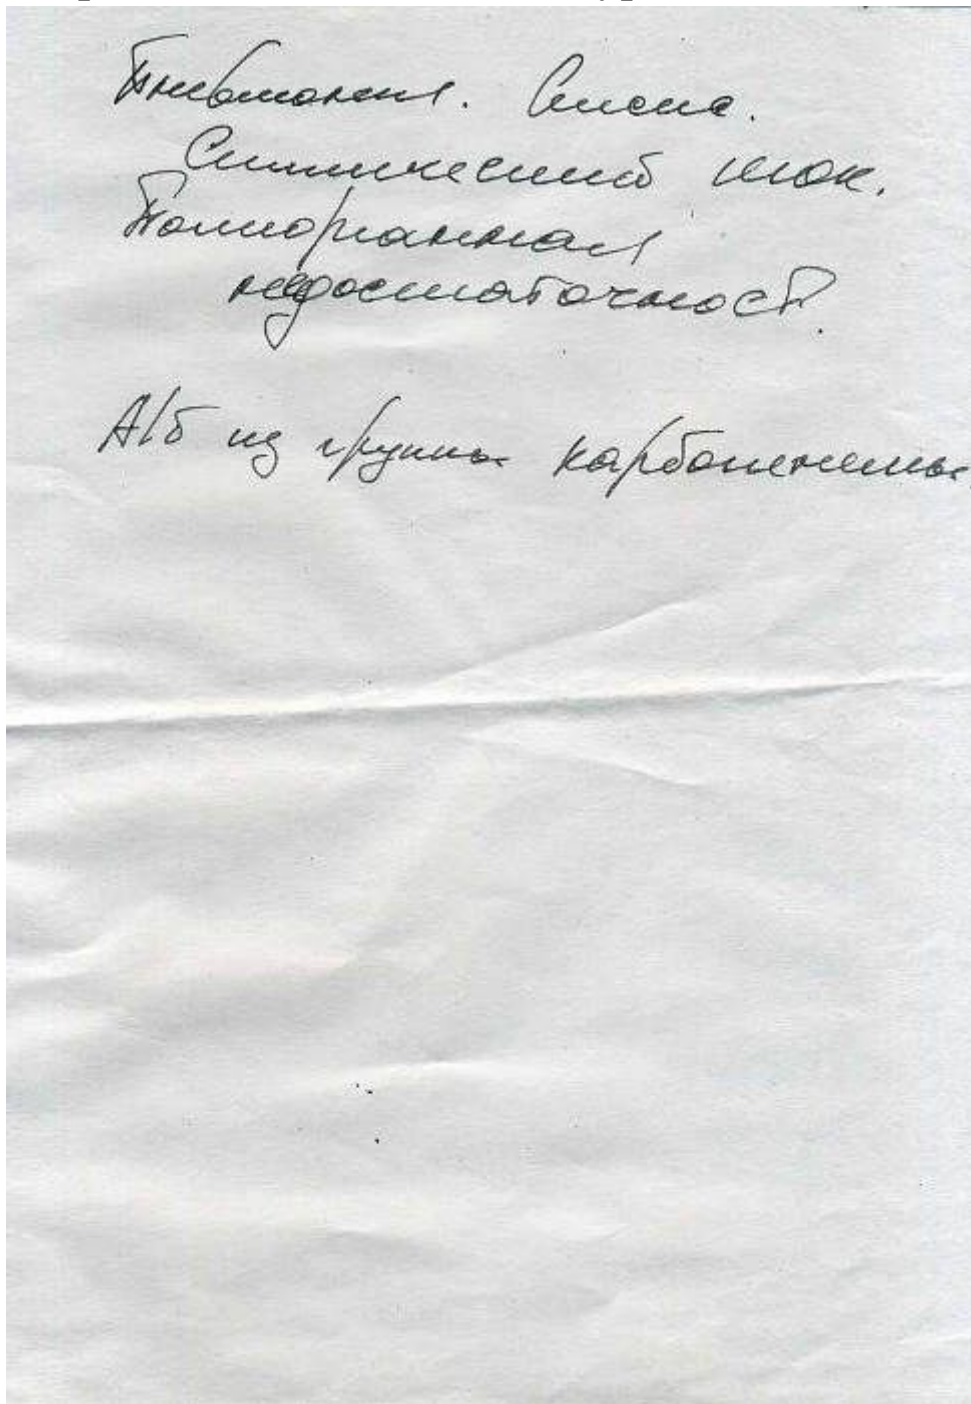 Пневмония. Сепсис.
Септический шок.
Полиорганная
недостаточность.
А/б из группы карбопенемы